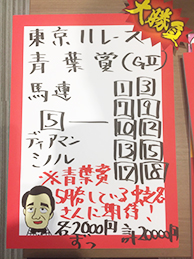 十勝負
東京11レース
青葉賞(GⅡ)
馬連
5 ―
1 3
7 9
10 12
13 15
17 18
ディアマン
ミノル
※青葉賞
5月治している蛯名
さんに期待!
各2000円 計20000円
ずつ